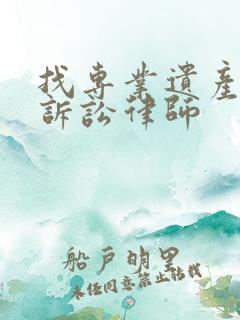 找專業遺產
訴訟律師
船戶明里
未經同意禁止轉載